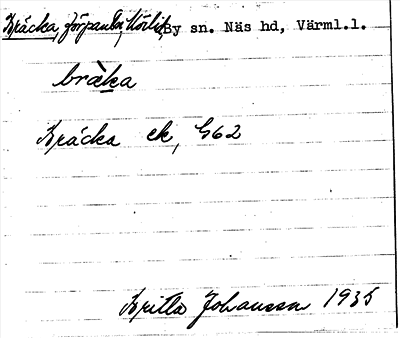 Bräcka, förpanta, By sn. Näs hd, Värml.l.
bràka
Bräcka ek, G62
Britta Johansson 1935